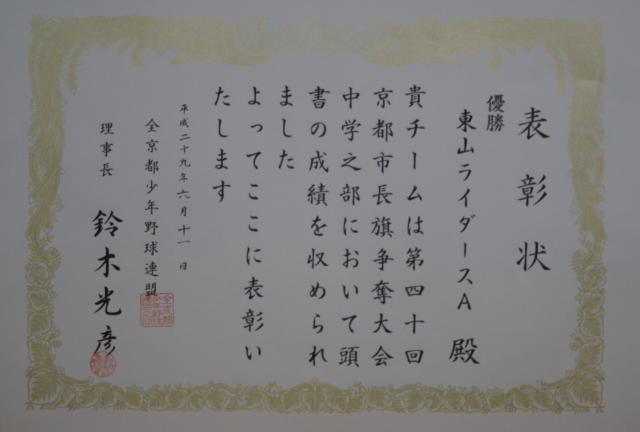 表彰状
優勝
東山ライダースA 殿
貴チームは第四十回
京都市長旗争奪大会
中学之部において頭
書の成績を収められ
ました
よってここに表彰い
たします
平成二十九年六月十一日
全京都少年野球連盟
理事長 鈴木光彦